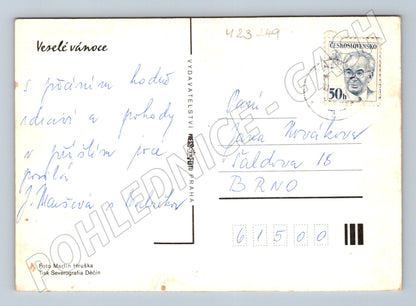 423 249
Veselé vánoce
ČESKOSLOVENSKO
50h
s přáním hodně
zdraví a pohody
v příštím roce
posílá
J.
Paní
Jana Nováková
Šaldova 15
BRNO
61500
VYDAVATELSTVÍ PRAHA
Foto Martin Hruška
Tisk Severografia Děčín
POHLEDNICE - GASH